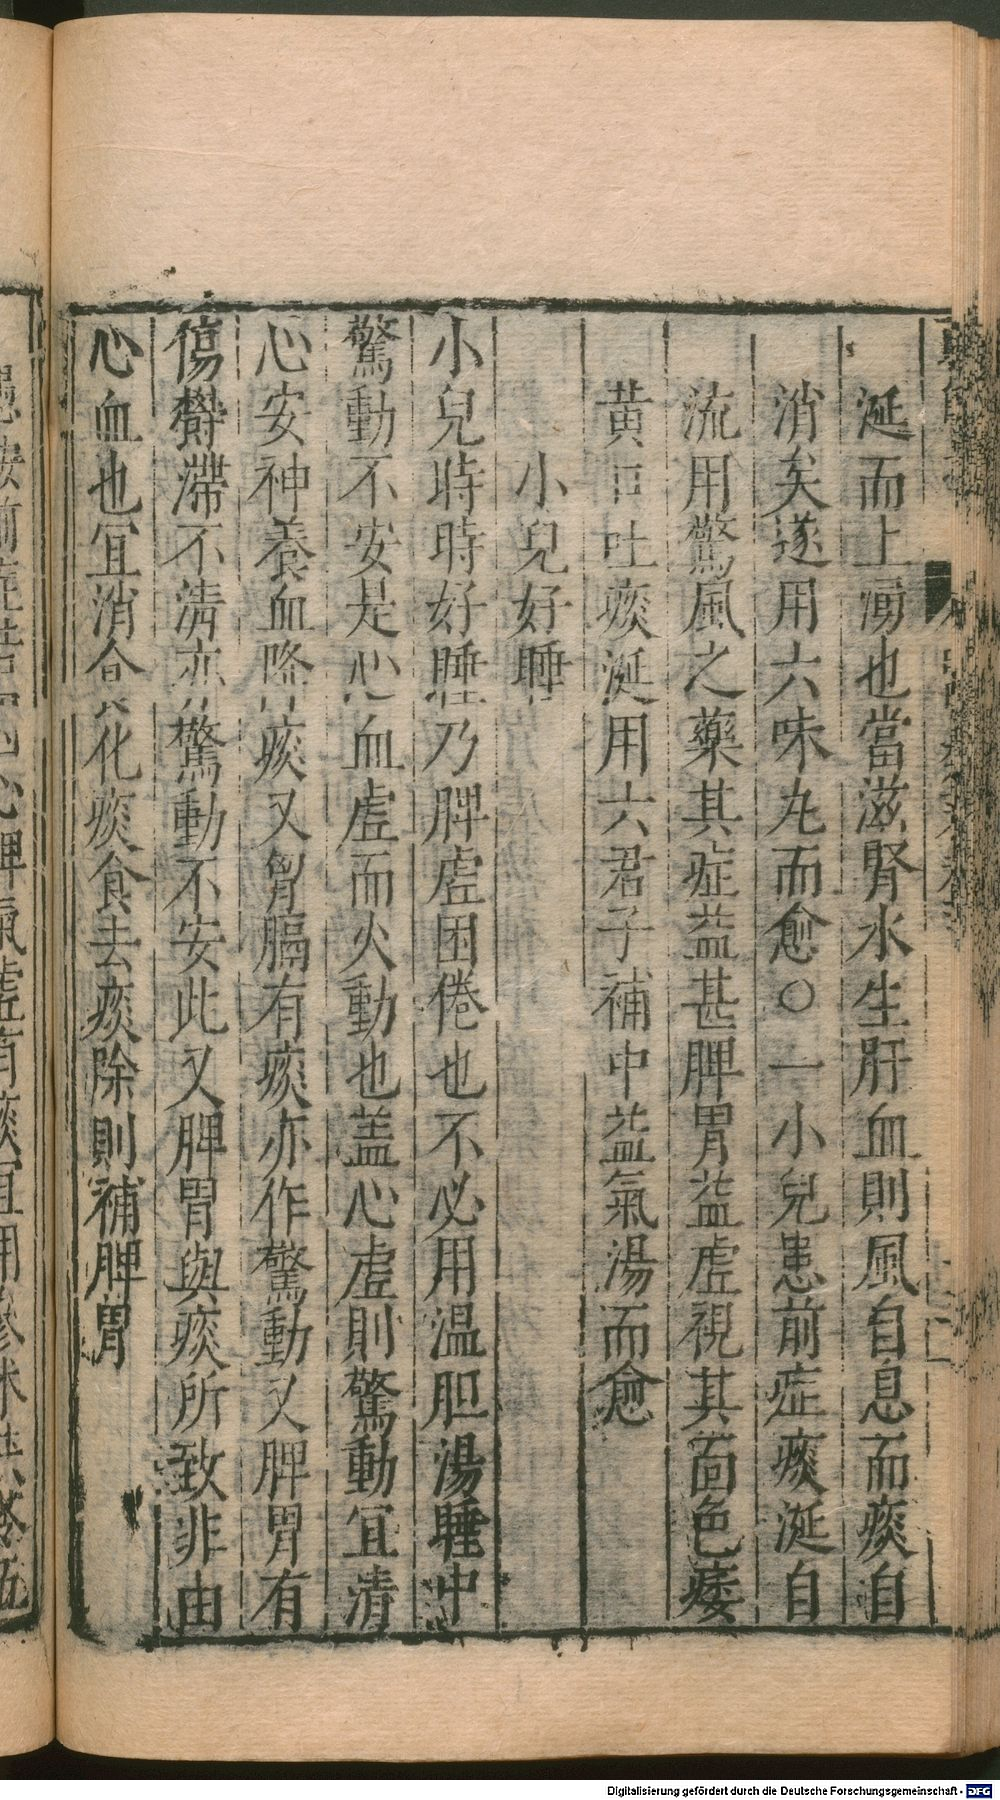 涎而上涌也當滋腎水生肝血則風自息而痰自
消矣遂用六味丸而愈○一小兒患前症痰涎自
流用驚風之藥其症益甚脾胃益虛視其面色痿
黃口吐痰涎用六君子補中益氣湯而愈
小兒好睡
小兒時時好睡乃脾虛困倦也不必用温胆湯睡中
驚動不安是心血虛而火動也盖心虛則驚動宜清
心安神養血降痰又胷膈有痰亦作驚動又脾胃有
傷欝滯不清亦驚動不安此又脾胃與痰所致非由
心血也宜消食化痰食去痰除則補脾胃
Digitalisierung gefördert durch die Deutsche Forschungsgemeinschaft - DFG